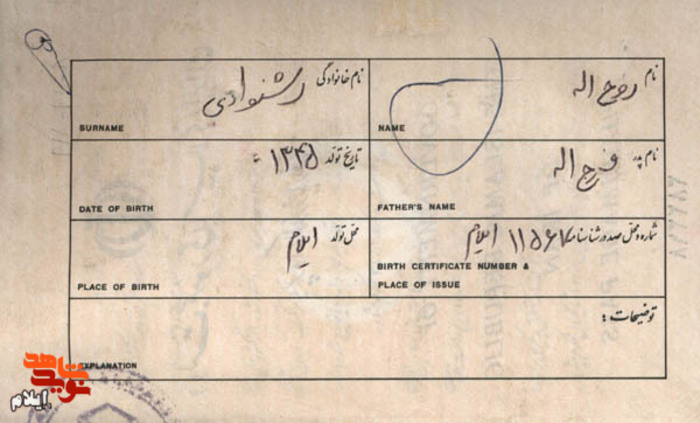 نام روح اله
NAME
نام خانوادگی رشنوادی
SURNAME
نام پدر فرج اله
FATHER'S NAME
تاریخ تولد ۱۳۴۵
DATE OF BIRTH
شماره و محل صدور شناسنامه ۱۱۵۶۷ ایلام
BIRTH CERTIFICATE NUMBER &
PLACE OF ISSUE
محل تولد ایلام
PLACE OF BIRTH
توضیحات :
EXPLANATION
نوید شاهد
ایلام